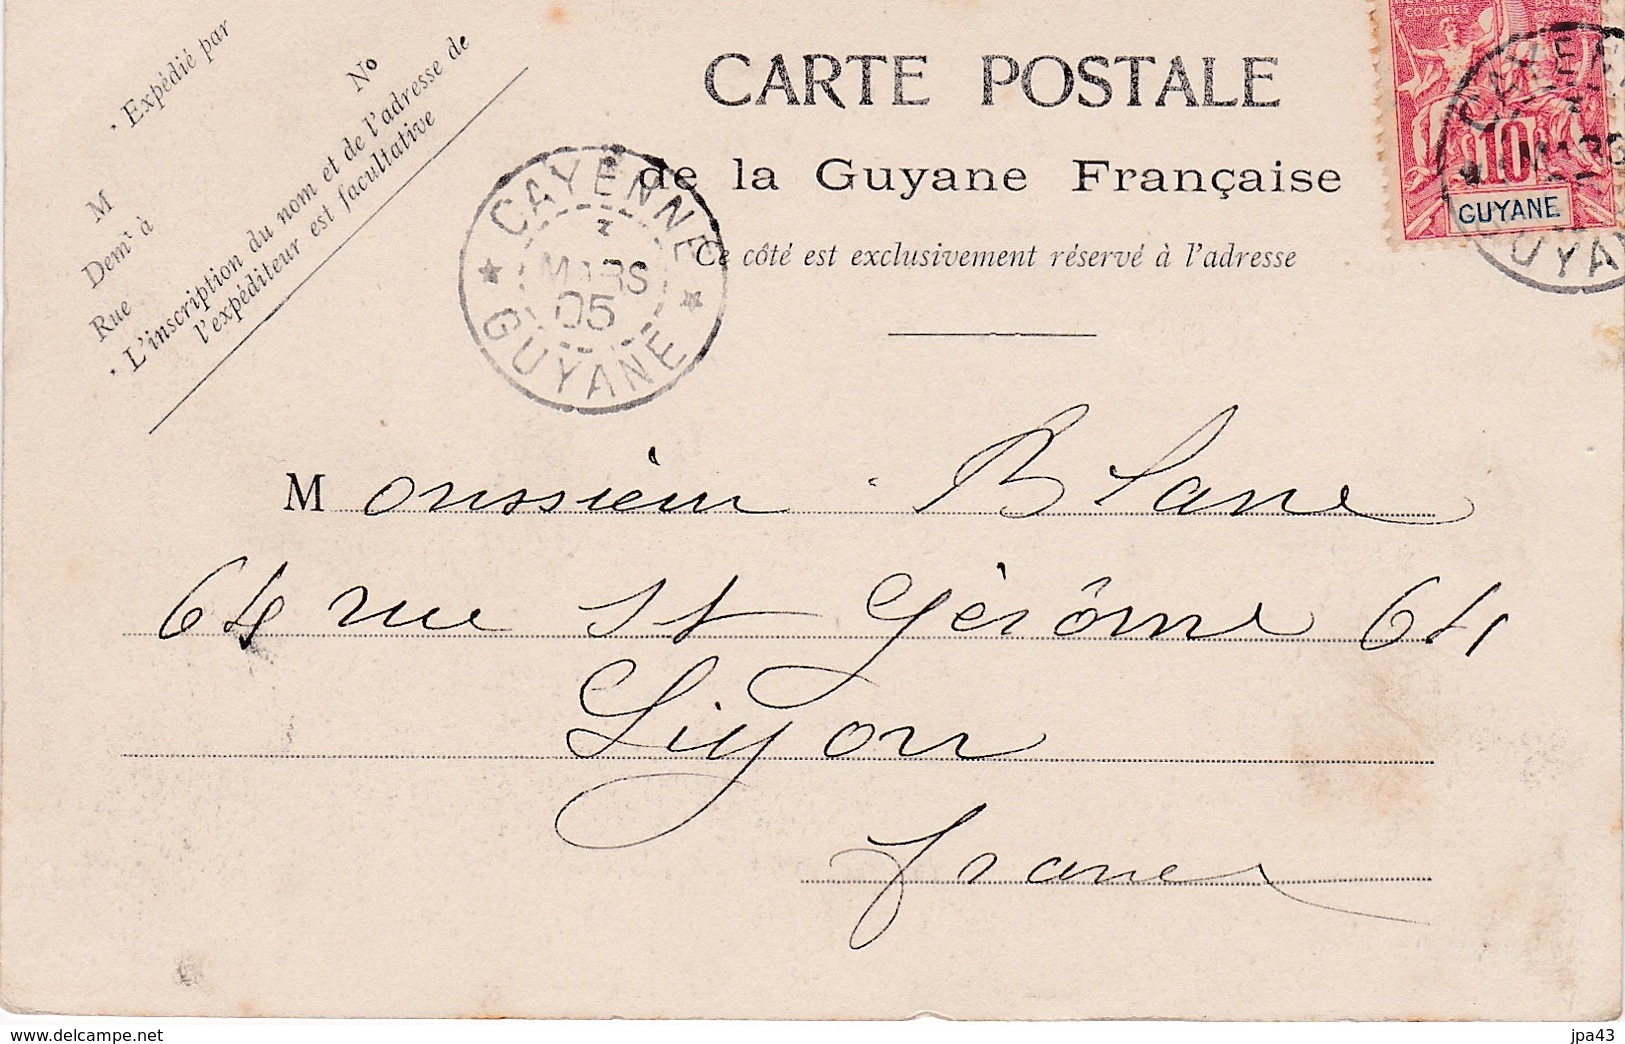 Expédié par
M
Demt à
Rue
No
L'inscription du nom et de l'adresse de
l'expéditeur est facultative
CARTE POSTALE
de la Guyane Française
Ce côté est exclusivement réservé à l'adresse
CAYENNE
MARS
05
GUYANE
COLONIES
10
GUYANE
Monssieur Blanc
64 rue St Gérôme 64
Liyon
france
www.delcampe.net
jpa43